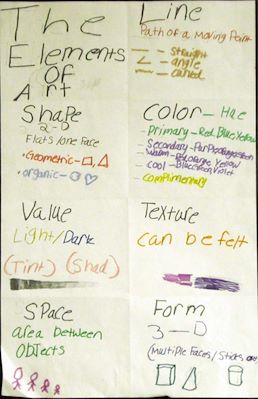 The
Elements
Of
Art
Line
Path of a Moving Point
— Straight
angle
— curved
Shape
2-D
Flats/one Face
• Geometric-
• organic-
Color - Hue
- Primary - Red Blue Yellow
- Secondary - Purple Orange Green
- warm - Red Orange Yellow
- cool - Blue Green Violet
- Complimentary
Value
Light/Dark
(Tint) (Shad)
Texture
can be felt
Space
area between
objects
Form
3-D
(Multiple Faces/